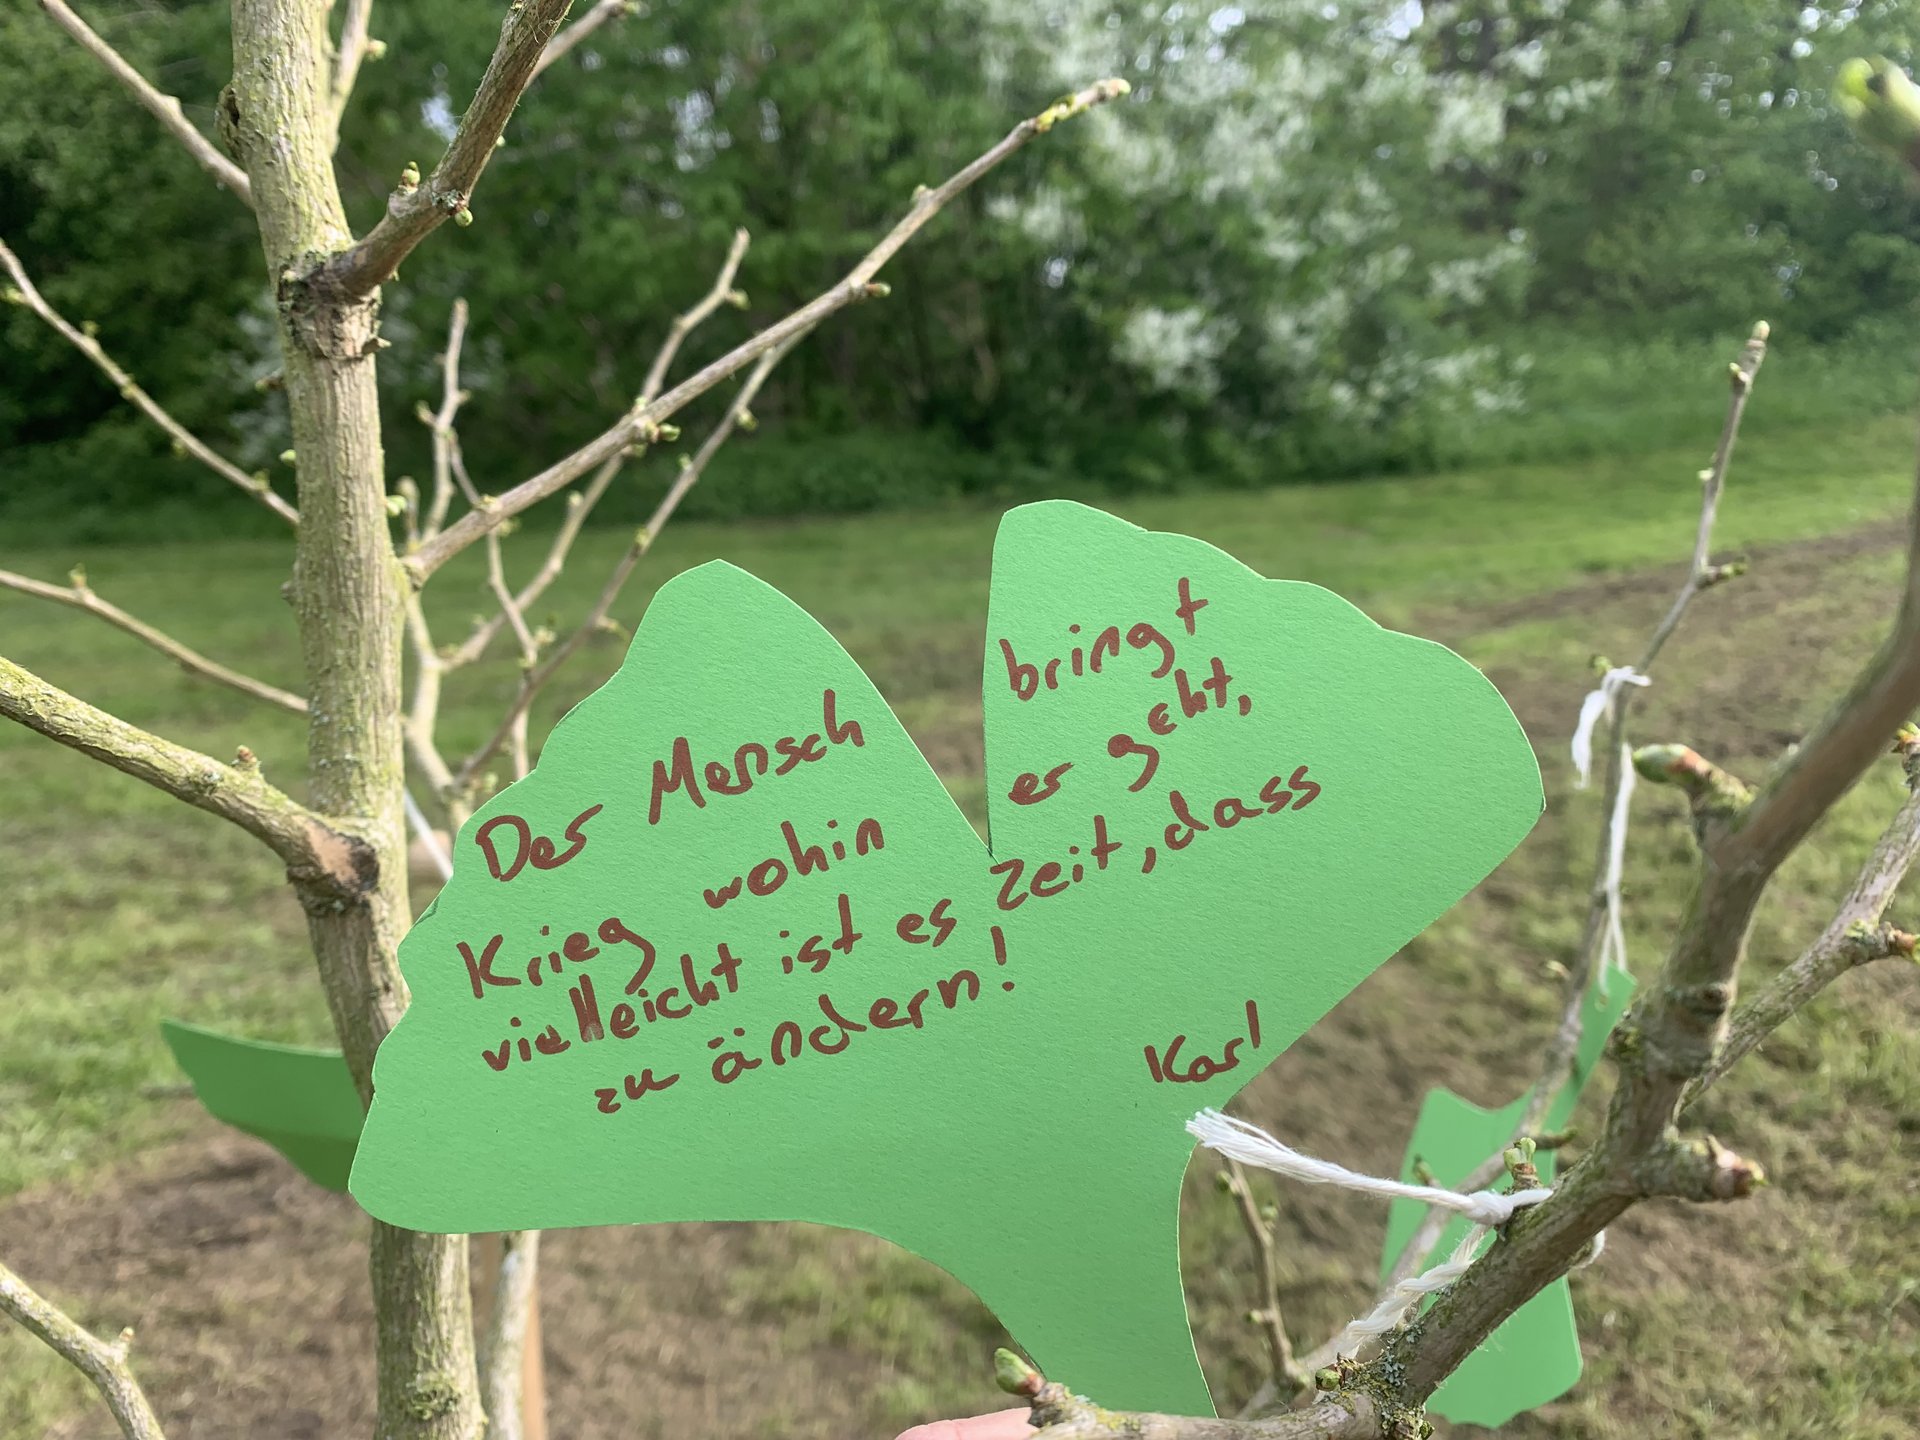 Der Mensch bringt
Krieg wohin er geht,
vielleicht ist es Zeit, dass
zu ändern!
Karl